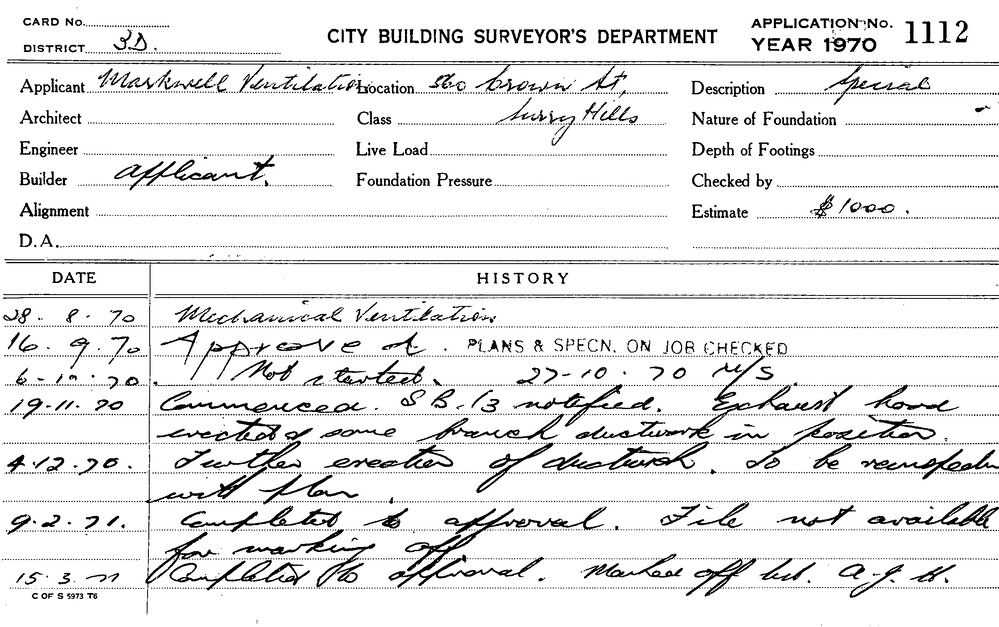 CARD No.
DISTRICT 3D.
CITY BUILDING SURVEYOR'S DEPARTMENT
APPLICATION No. 1112
YEAR 1970
Applicant Markwell Ventilation Location 560 Crown St, Description Special
Architect Class Surry Hills Nature of Foundation
Engineer Live Load Depth of Footings
Builder Applicant. Foundation Pressure Checked by
Alignment Estimate $1000.
D.A.
DATE HISTORY
28. 8. 70 Mechanical Ventilation
16. 9. 70 Approved. PLANS & SPECN. ON JOB CHECKED
6-10-70. Not started. 27-10.70 N/S
19.11.70 Commenced. SB.13 notified. Exhaust hood
erected & some branch ductwork in position.
4.12.70. Further erection of ductwork. To be reinspected
with plan.
9.2.71. Completed to approval. File not available
for marking off
15.3.71 Completed to approval. Marked off
C OF S 5973 T6